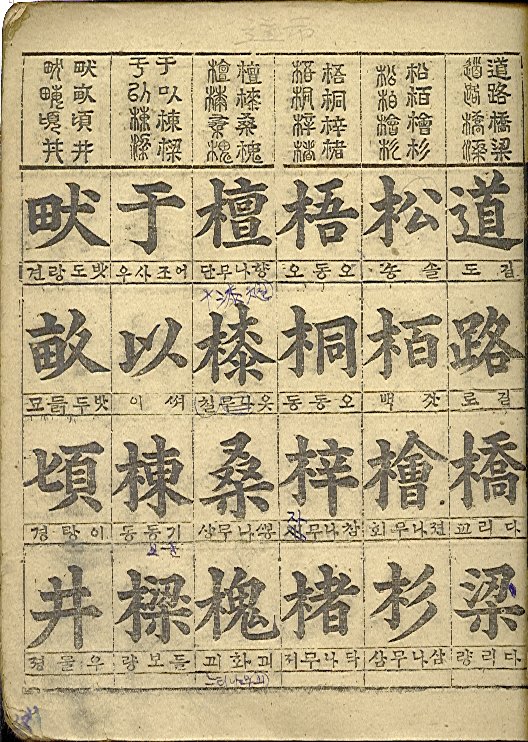 道路橋梁
道路橋梁
道
길 도
路
길 로
橋
다리 교
梁
다리 량
松栢檜杉
松栢檜杉
松
솔 송
栢
잣 백
檜
젼나무 회
杉
삼나무 삼
梧桐梓楮
梧桐梓楮
梧
오동 오
桐
오동 동
梓
참나무
자
楮
닥나무 저
檀㯃桑槐
檀㯃桑槐
檀
향나무 단
㯃
옷나무 칠
桑
뽕나무 상
槐
괴화 괴
于以棟樑
于以棟樑
于
어조사 우
以
써 이
棟
기동 동
樑
들보 량
畎畝頃井
畎畝頃井
畎
밧도랑 견
畝
밧두둑 모
頃
이랑 경
井
우물 졍